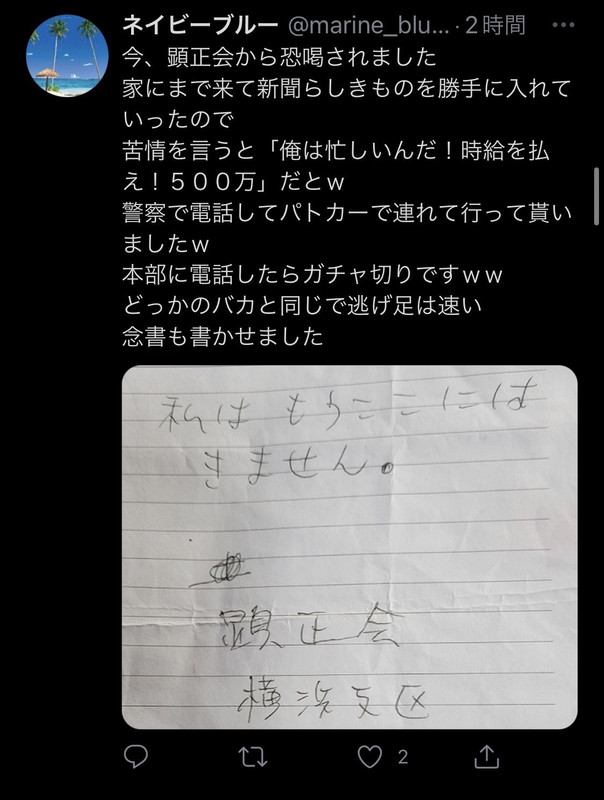 ネイビーブルー @marine_blu... · 2時間
今、顕正会から恐喝されました
家にまで来て新聞らしきものを勝手に入れて
いったので
苦情を言うと「俺は忙しいんだ！時給を払
え！５００万」だとｗ
警察で電話してパトカーで連れて行って貰い
ましたｗ
本部に電話したらガチャ切りですｗｗ
どっかのバカと同じで逃げ足は速い
念書も書かせました
私は もうここには
きません。
顕正会
横浜支区
2